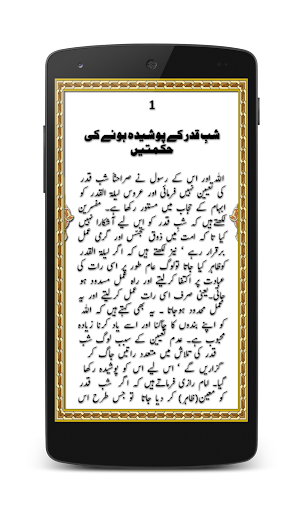 1
شبِ قدر کے پوشیدہ ہونے کی
حکمتیں
اللہ اور اس کے رسول نے صراحتاً شب قدر
کی تعیین نہیں فرمائی اور عروس لیلۃ القدر کو
ابہام کے حجاب میں مستور رکھا ہے۔ مفسرین
لکھتے ہیں کہ شب قدر کو اس لیے آشکارا نہیں
کیا تا کہ امت میں ذوق تجسس اور گرمی عمل
برقرار رہے ، نیز لکھتے ہیں کہ اگر لیلۃ القدر
کوظاہر کیا جاتا تولوگ عام طور پر اسی رات کی
عبادت پر اکتفا کرلیتے اور راہ عمل مسدود ہو
جاتی۔یعنی صرف اسی رات عمل کرلیتے اور یہ
عمل محدود ہوجاتا۔ یہ بھی کہتے ہیں کہ اللہ
کو اپنے بندوں کا جاگنا اور اسے یاد کرنا زیادہ
محبوب ہے۔ عدم تعیین کے سبب لوگ شب
قدر کی تلاش میں متعدد راتیں جاگ کر
گزاریں گے ، اس لیے اس کو پوشیدہ رکھا
گیا۔ امام رازی فرماتےہیں کہ اگر شب قدر
کو معین(ظاہر) کر دیا جاتا تو جس طرح اس